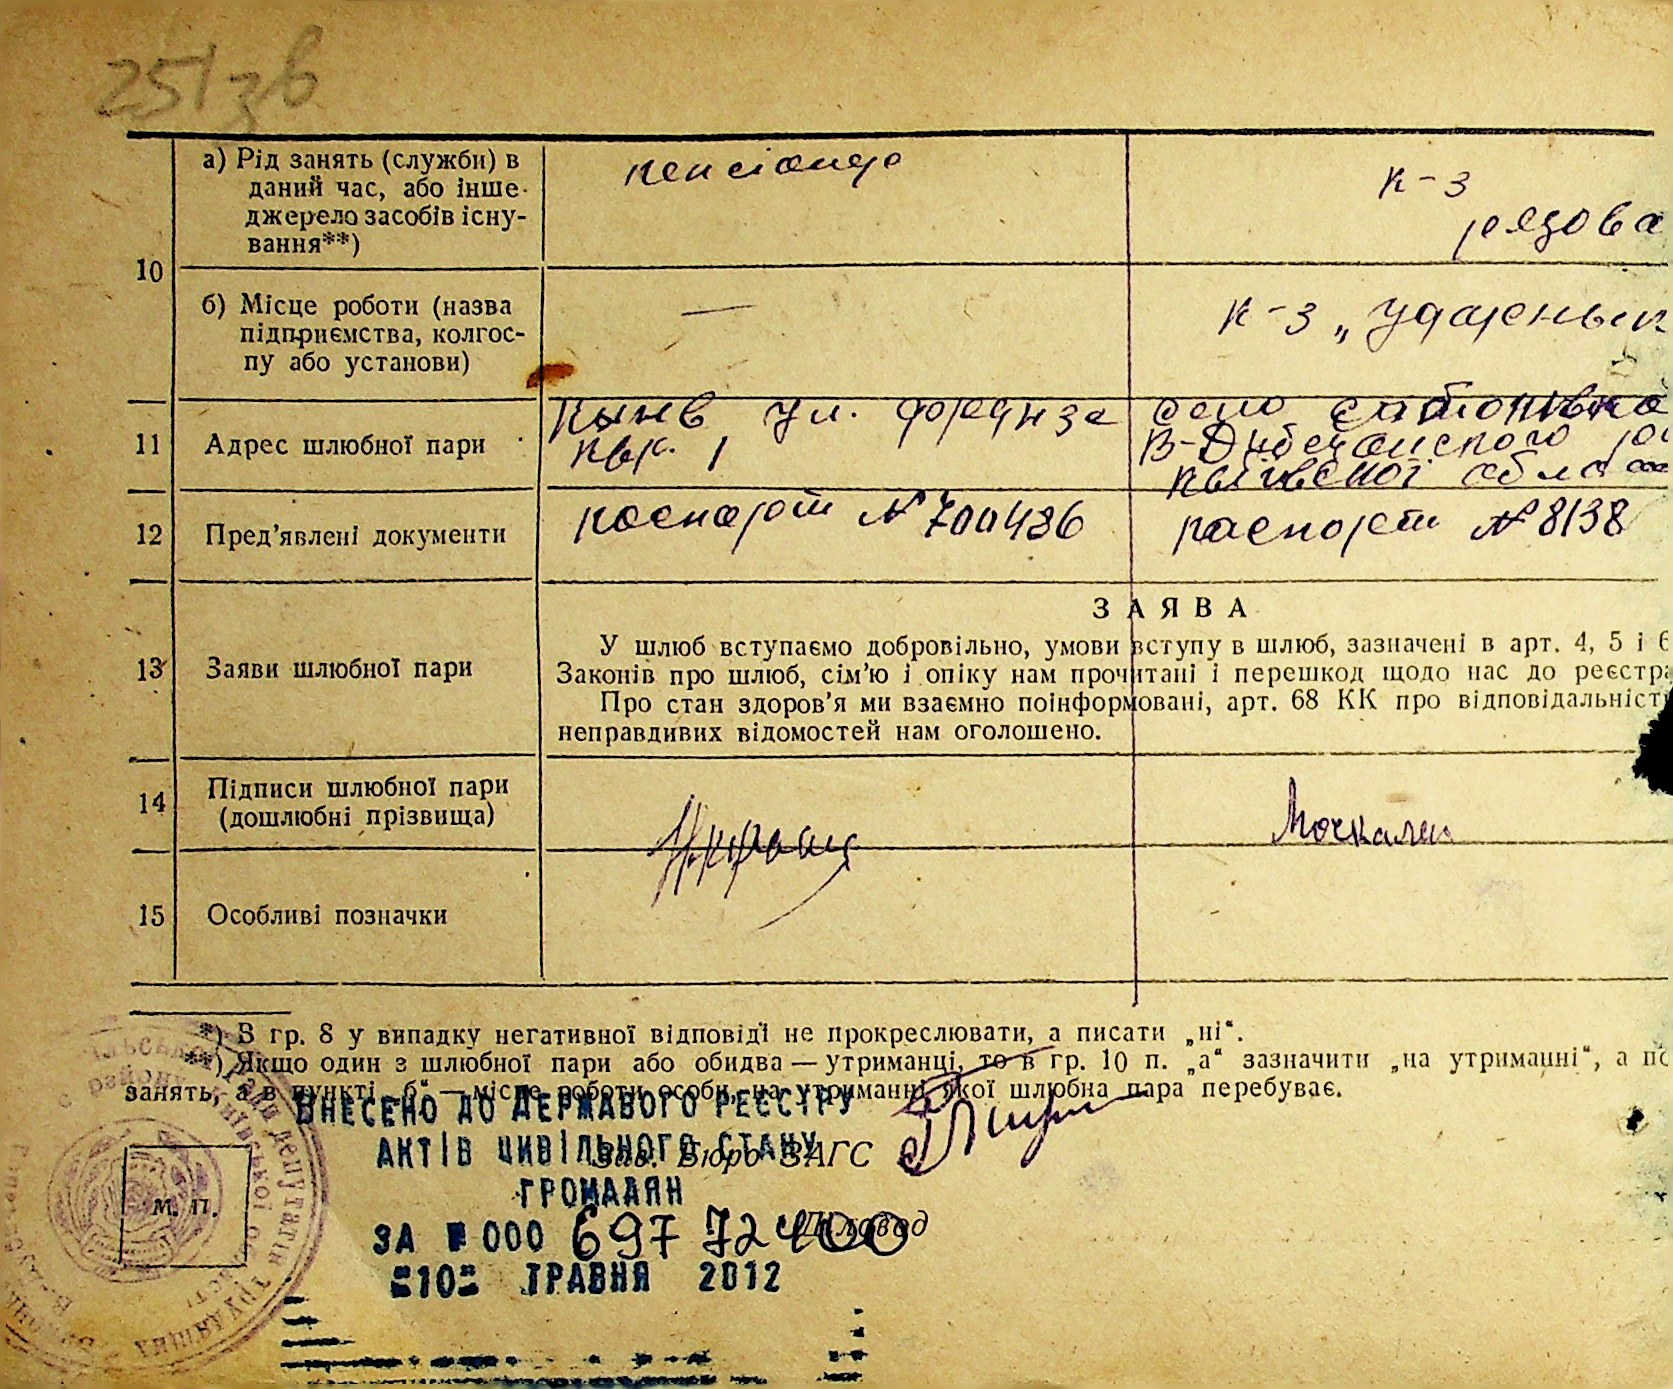 251 зв
10
а) Рід занять (служби) в
даний час, або інше
джерело засобів існу-
вання**)
пенсіонер
к-з
рядова
б) Місце роботи (назва
підприємства, колгос-
пу або установи)
—
к-з „Ударнык
11
Адрес шлюбної пари
ул. Фрунзе
село
12
Пред’явлені документи
паспорт № 700486
паспорт № 8138
13
Заяви шлюбної пари
ЗАЯВА
У шлюб вступаємо добровільно, умови вступу в шлюб, зазначені в арт. 4, 5 і 6
Законів про шлюб, сім’ю і опіку нам прочитані і перешкод щодо нас до реєстра
Про стан здоров’я ми взаємно поінформовані, арт. 68 КК про відповідальність
неправдивих відомостей нам оголошено.
14
Підписи шлюбної пари
(дошлюбні прізвища)
15
Особливі позначки
*) В гр. 8 у випадку негативної відповіді не прокреслювати, а писати „ні“.
**) Якщо один з шлюбної пари або обидва — утриманці, то в гр. 10 п. „а“ зазначити „на утриманні“, а по
занять, а в пункті „б“ — місце роботи особи, на утриманні якої шлюбна пара перебуває.
ВНЕСЕНО ДО ДЕРЖАВОГО РЕЄСТРУ
АКТІВ ЦИВІЛЬНОГО СТАНУ
Зав. Бюро ЗАГС
ГРОМАДЯН
М. П.
ЗА № 000 697 72400
Діловод
"10" ТРАВНЯ 2012